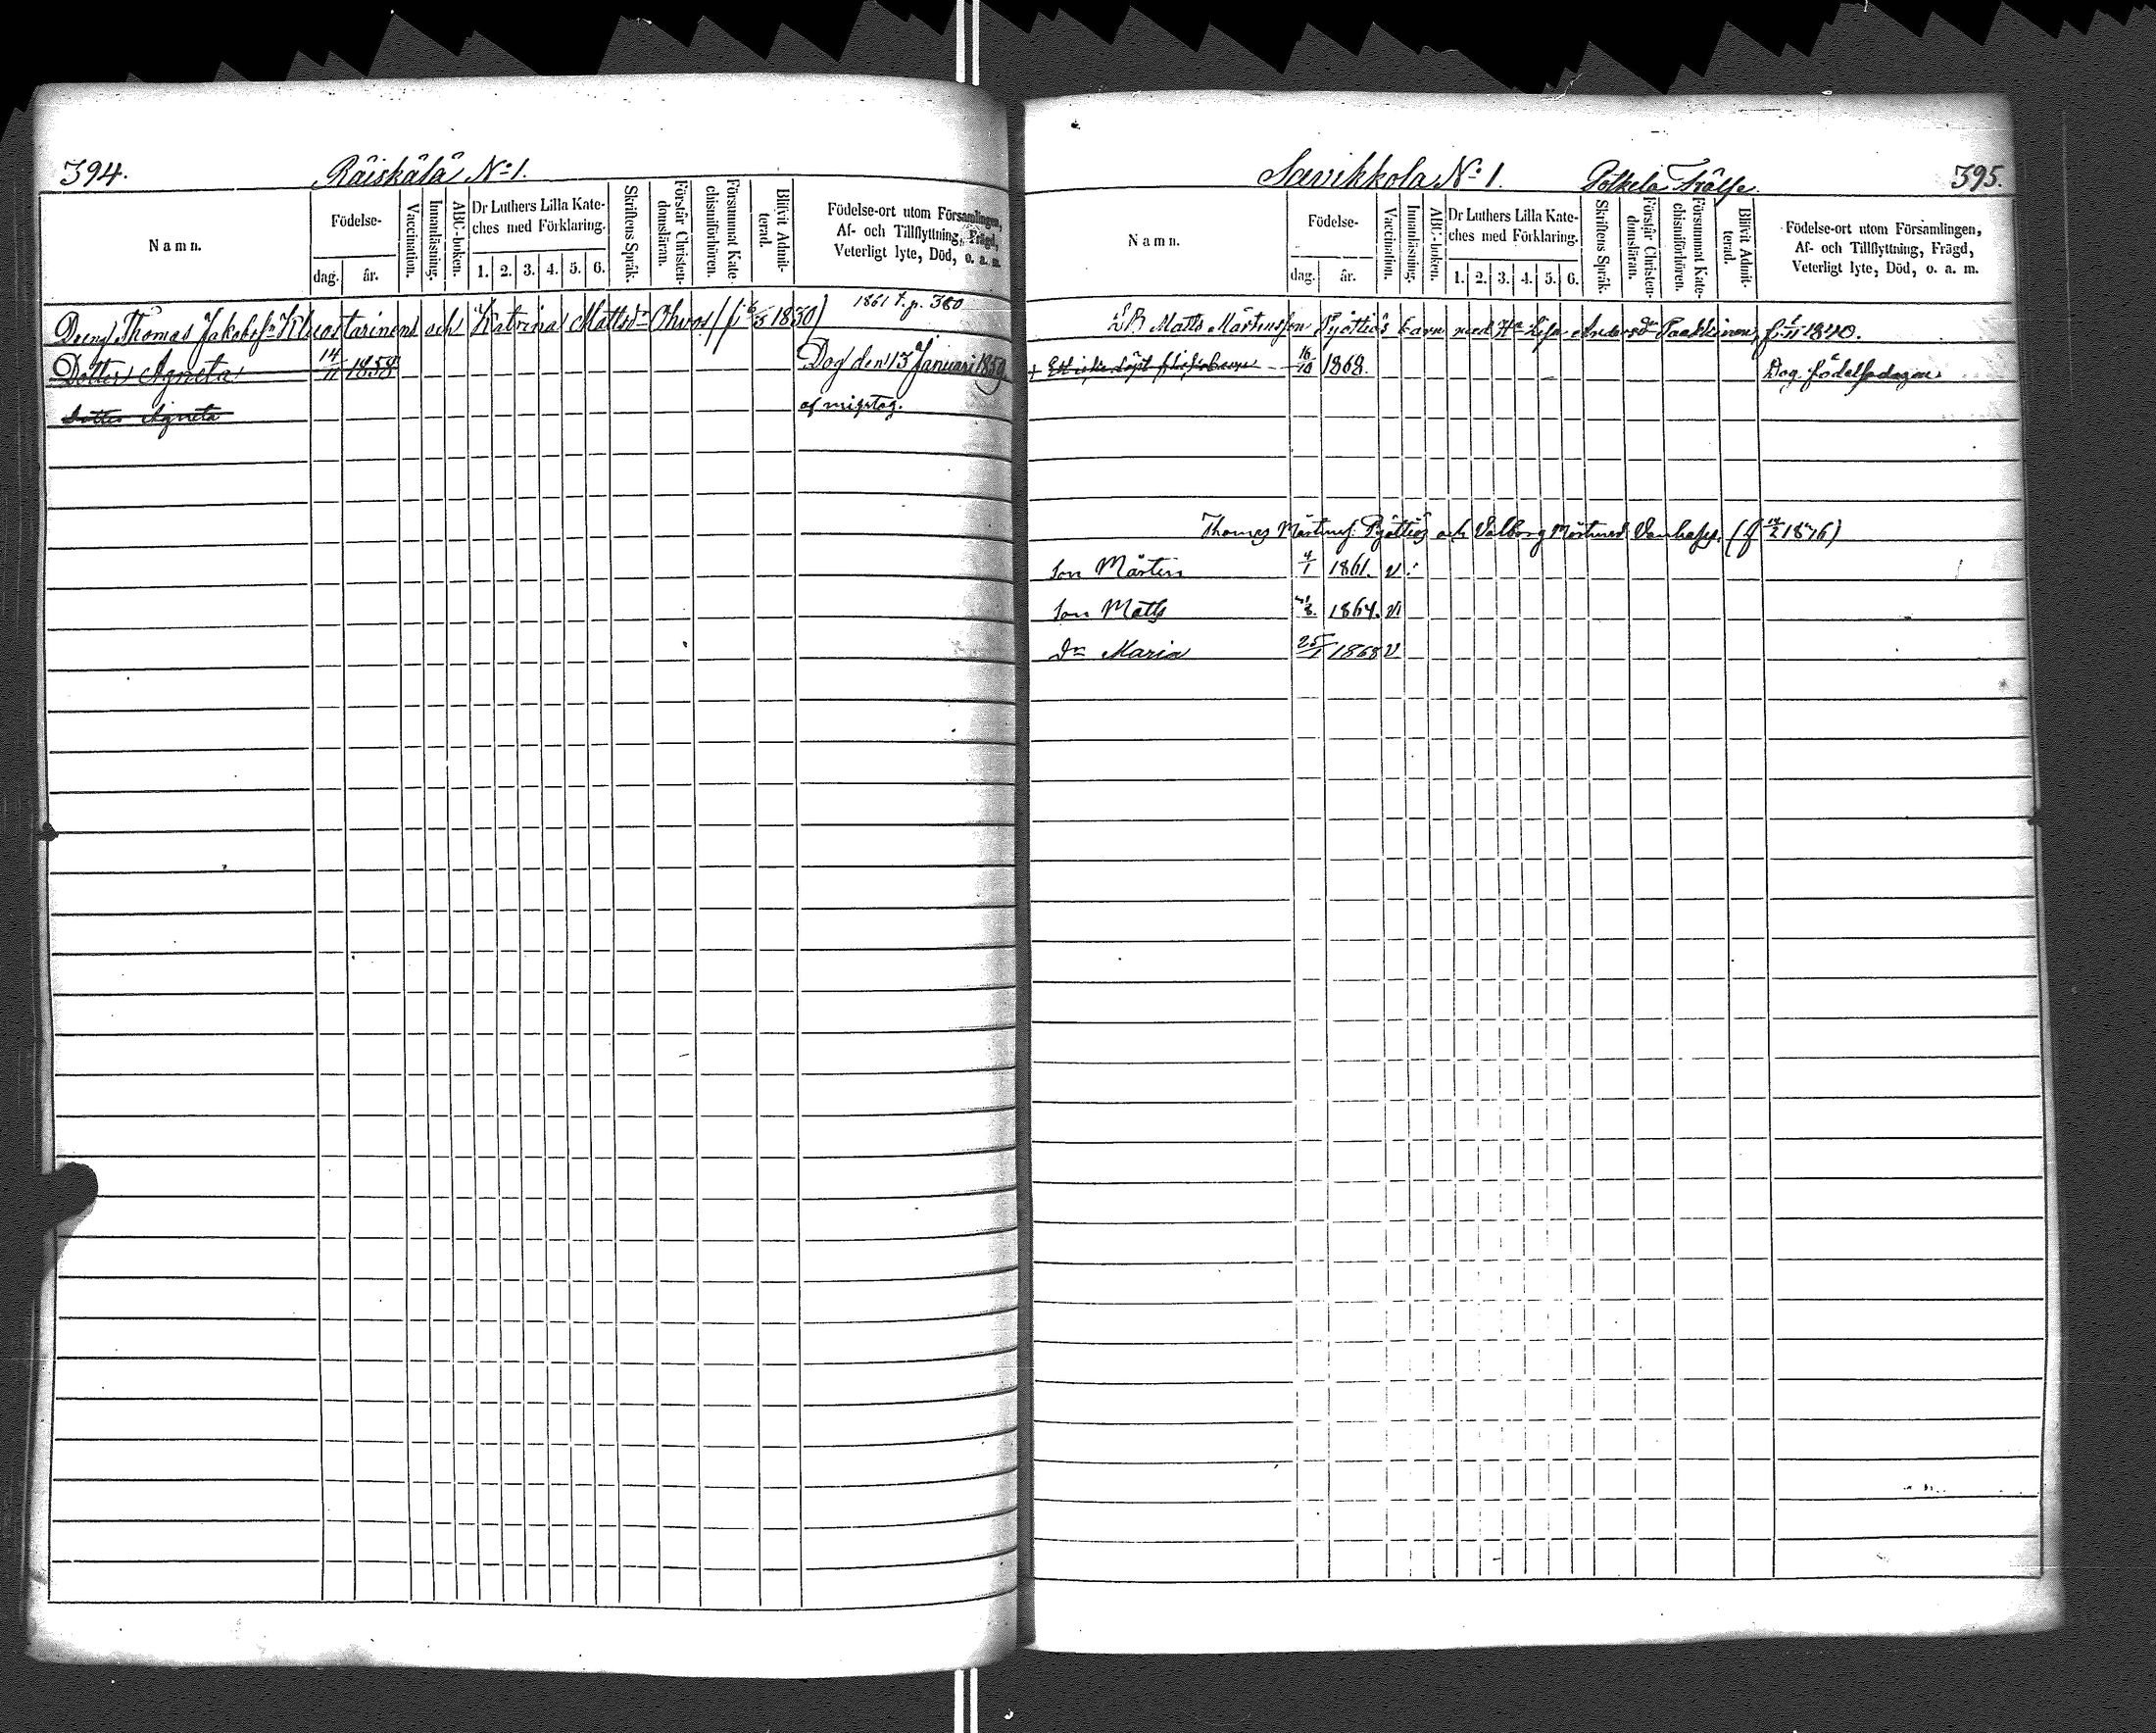 394. Räiskälä No 1.
Namn.
Födelse-
dag. år.
Vaccination.
Innanläsning.
ABC-boken.
Dr Luthers Lilla Kate-
ches med Förklaring.
1. 2. 3. 4. 5. 6.
Skriftens Språk.
Förstår Christen-
domsläran.
Försummat Kate-
chismiförhören.
Blifvit Admit-
terad.
Födelse-ort utom Församlingen,
Af- och Tillflyttning, Frägd,
Veterligt lyte, Död, o. a. m.
1861 t. p. 380
Dreng Thomas Jakobss:n och Katrina Mattsdr Ohvo 1830)
Dotter Agneta 14/11 1858 Dog den 13 Januari 1859
af misstag.
Dotter Agneta
Savikkola No 1. Pölkelä Frälse 395.
Namn.
Födelse-
dag. år.
Vaccination.
Innanläsning.
ABC-boken.
Dr Luthers Lilla Kate-
ches med Förklaring.
1. 2. 3. 4. 5. 6.
Skriftens Språk.
Förstår Christen-
domsläran.
Försummat Kate-
chismiförhören.
Blifvit Admit-
terad.
Födelse-ort utom Församlingen,
Af- och Tillflyttning, Frägd,
Veterligt lyte, Död, o. a. m.
Matts Mårtensson Pyöttiös barn med Lisa Andersdr Paakkinen, f. 1840.
+ Ett icke döpt flickobarn 16/10 1868. Dog födelsedagen.
Thomas Mårtenss. Pyöttiös och Valborg Mårtensd. Vanhap.
Son Mårten 4/1 1861. v
Son Matts 1864. v
Dr Maria 25/1 1868 v